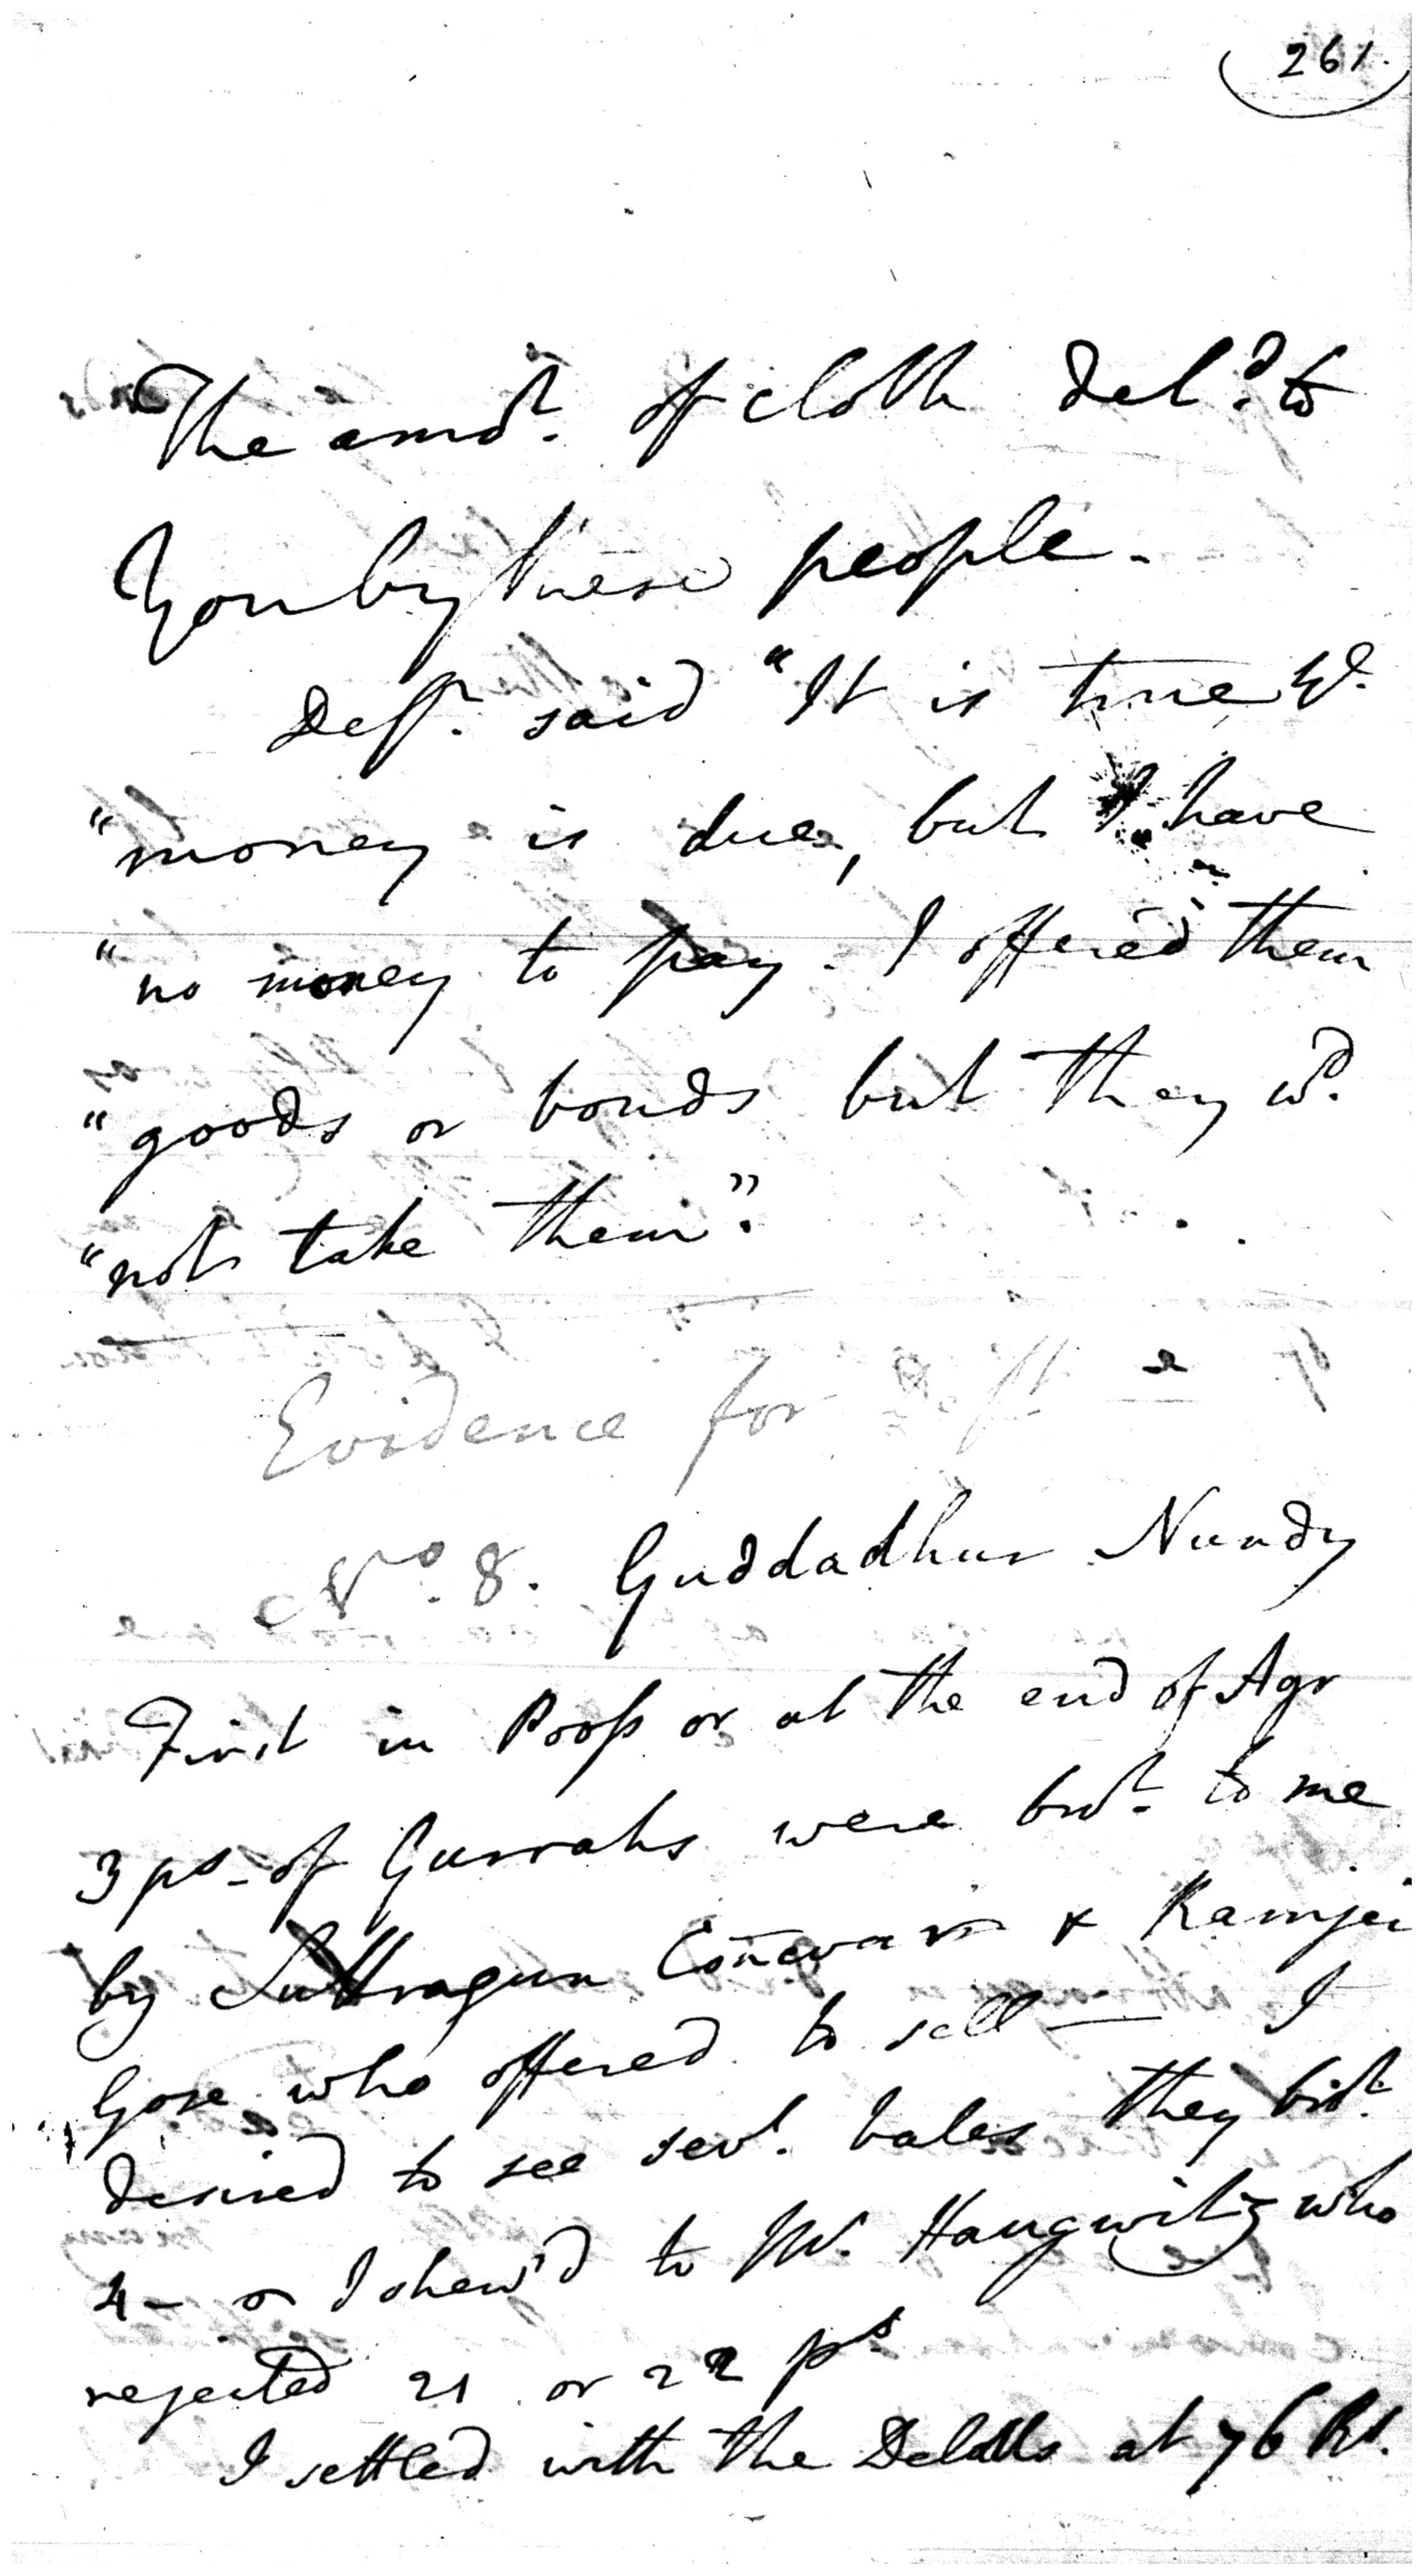 261.
The amot. of cloth deld. to
You by these people.
Deft. said "It is true Sr.
"money is due, but I have
"no money to pay. I offered them
"goods or bonds but they wd.
"not take them".
Evidence for Deft
No. 8. Guddadhur Nundy
First in Poos or at the end of Agr
3 ps. of Gurrahs were brot. to me
by Suttragun Coñewar & Ramjei
Gose who offered to sell — I
desired to see sevl. bales they brot.
4 — I shew'd to Mr. Haugwitz who
rejected 21 or 22 ps
I settled with the Delalls at 76 Rs.